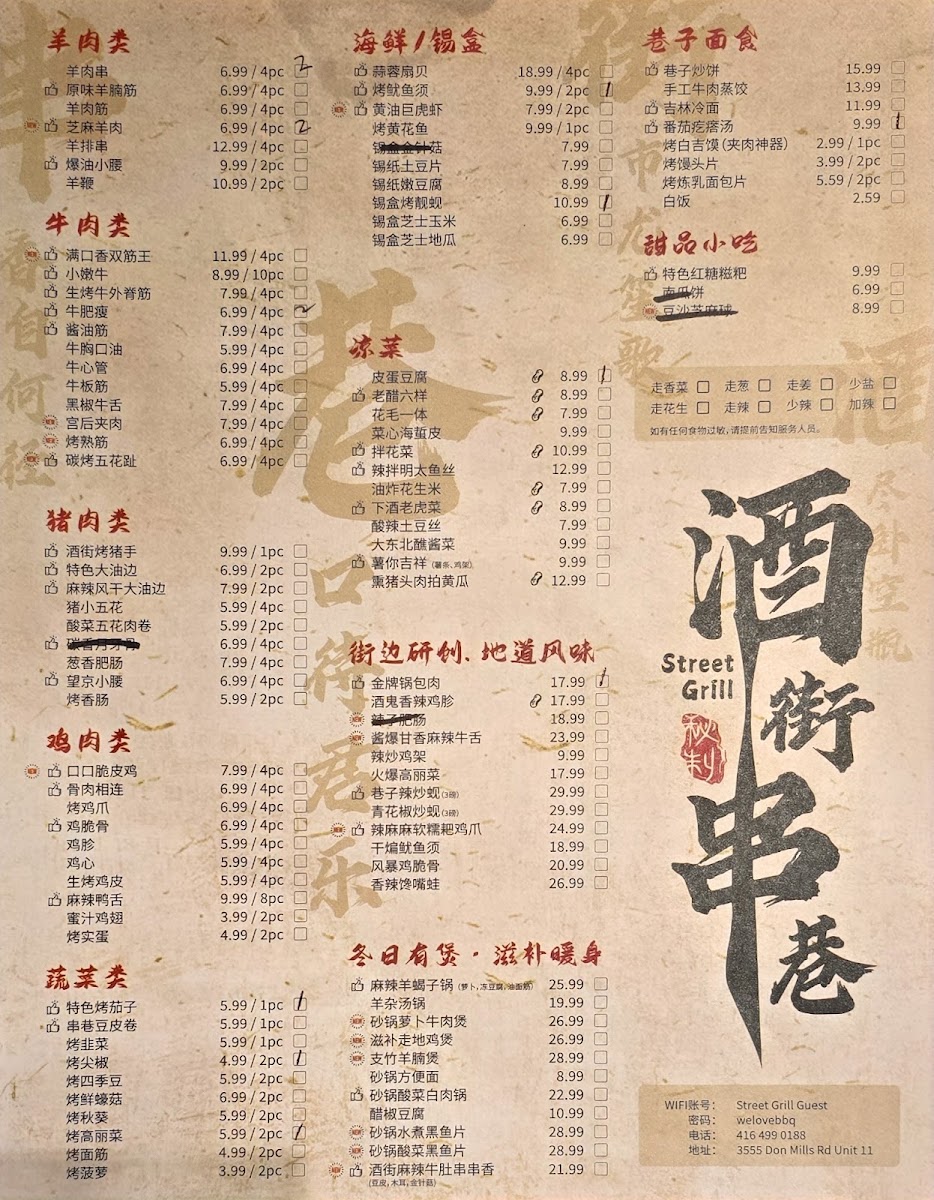 羊肉类
羊肉串 6.99 / 4pc 2
原味羊腩筋 6.99 / 4pc
羊肉筋 6.99 / 4pc
芝麻羊肉 6.99 / 4pc 2
羊排串 12.99 / 4pc
爆油小腰 9.99 / 2pc
羊鞭 10.99 / 2pc
牛肉类
满口香双筋王 11.99 / 4pc
小嫩牛 8.99 / 10pc
生烤牛外脊筋 7.99 / 4pc
牛肥瘦 6.99 / 4pc 2
酱油筋 7.99 / 4pc
牛胸口油 5.99 / 4pc
牛心管 6.99 / 4pc
牛板筋 5.99 / 4pc
黑椒牛舌 7.99 / 4pc
宫后夹肉 7.99 / 4pc
烤熟筋 6.99 / 4pc
碳烤五花趾 6.99 / 4pc
猪肉类
酒街烤猪手 9.99 / 1pc
特色大油边 6.99 / 2pc
麻辣风干大油边 7.99 / 2pc
猪小五花 5.99 / 4pc
酸菜五花肉卷 5.99 / 2pc
碳香月牙骨 6.99 / 4pc
葱香肥肠 7.99 / 4pc
望京小腰 6.99 / 4pc
烤香肠 5.99 / 2pc
鸡肉类
口口脆皮鸡 7.99 / 4pc
骨肉相连 6.99 / 4pc
烤鸡爪 6.99 / 4pc
鸡脆骨 6.99 / 4pc
鸡胗 5.99 / 4pc
鸡心 5.99 / 4pc
生烤鸡皮 5.99 / 4pc
麻辣鸭舌 9.99 / 8pc
蜜汁鸡翅 3.99 / 2pc
烤实蛋 4.99 / 2pc
蔬菜类
特色烤茄子 5.99 / 1pc 1
串巷豆皮卷 5.99 / 1pc
烤韭菜 5.99 / 1pc
烤尖椒 4.99 / 2pc 1
烤四季豆 5.99 / 2pc
烤鲜蠔菇 6.99 / 2pc
烤秋葵 5.99 / 2pc
烤高丽菜 5.99 / 2pc 1
烤面筋 4.99 / 2pc
烤菠萝 3.99 / 2pc
海鲜/锡盒
蒜蓉扇贝 18.99 / 4pc
烤鱿鱼须 9.99 / 2pc 1
黄油巨虎虾 7.99 / 2pc
烤黄花鱼 9.99 / 1pc
锡盒金针菇 7.99
锡纸土豆片 7.99
锡纸嫩豆腐 8.99
锡盒烤靓蚬 10.99 1
锡盒芝士玉米 6.99
锡盒芝士地瓜 6.99
凉菜
皮蛋豆腐 8.99 1
老醋六样 8.99
花毛一体 7.99
菜心海蜇皮 9.99
拌花菜 10.99
辣拌明太鱼丝 12.99
油炸花生米 7.99
下酒老虎菜 8.99
酸辣土豆丝 7.99
大东北蘸酱菜 9.99
薯你吉祥 (薯条、鸡架) 9.99
熏猪头肉拍黄瓜 12.99
街边研创、地道风味
金牌锅包肉 17.99 1
酒鬼香辣鸡胗 17.99
辣子肥肠 18.99
酱爆甘香麻辣牛舌 23.99
辣炒鸡架 9.99
火爆高丽菜 17.99
巷子辣炒蚬(3磅) 29.99
青花椒炒蚬(3磅) 29.99
辣麻麻软糯耙鸡爪 24.99
干煸鱿鱼须 18.99
风暴鸡脆骨 20.99
香辣馋嘴蛙 26.99
冬日有煲·滋补暖身
麻辣羊蝎子锅 (萝卜,冻豆腐,油面筋) 25.99
羊杂汤锅 19.99
砂锅萝卜牛肉煲 26.99
滋补走地鸡煲 26.99
支竹羊腩煲 28.99
砂锅方便面 8.99
砂锅酸菜白肉锅 22.99
醋椒豆腐 10.99
砂锅水煮黑鱼片 28.99
砂锅酸菜黑鱼片 28.99
酒街麻辣牛肚串串香 21.99
(豆皮,木耳,金针菇)
巷子面食
巷子炒饼 15.99
手工牛肉蒸饺 13.99
吉林冷面 11.99
番茄疙瘩汤 9.99 1
烤白吉馍(夹肉神器) 2.99 / 1pc
烤馒头片 3.99 / 2pc
烤炼乳面包片 5.59 / 2pc
白饭 2.59
甜品小吃
特色红糖糍粑 9.99
南瓜饼 6.99
豆沙芝麻球 8.99
走香菜 走葱 走姜 少盐
走花生 走辣 少辣 加辣
如有任何食物过敏,请提前告知服务人员。
酒街串巷
Street
Grill
秘制
WIFI账号: Street Grill Guest
密码: welovebbq
电话: 416 499 0188
地址: 3555 Don Mills Rd Unit 11
巷口待君乐